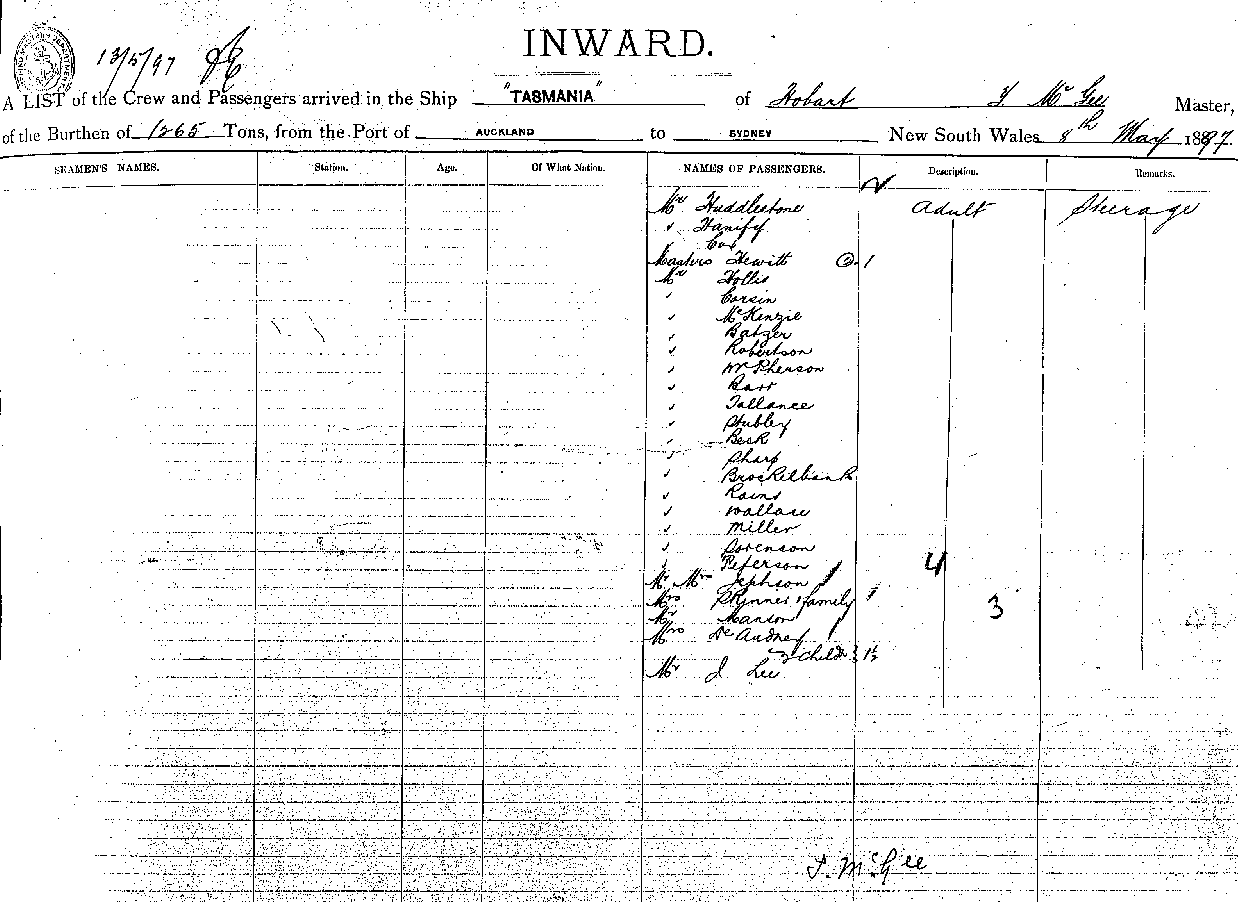 INWARD.
13/5/97
A LIST of the Crew and Passengers arrived in the Ship "TASMANIA" of Hobart T McGee Master,
of the Burthen of 1265 Tons, from the Port of AUCKLAND to SYDNEY New South Wales 8th May 1897.
SEAMEN'S NAMES. Station. Age. Of What Nation. NAMES OF PASSENGERS. Description. Remarks.
Mr Huddlestone adult Steerage
" Hanify
" Cox
Masters Hewitt 2 1
Mr Hollis
" Corsin
" McKenzie
" Batger
" Robertson
" McPherson
" Barr
" Tallance
" Stubley
" Beck
" Sharp
" Brockelbank
" Rains
" Wallace
" Miller
" Sorenson
" Peterson 4
Mr Mrs Jephson
Mrs Skinner & family 3
Mr Manson
Mrs
Child 1½
Mr J Lee
T. McGee